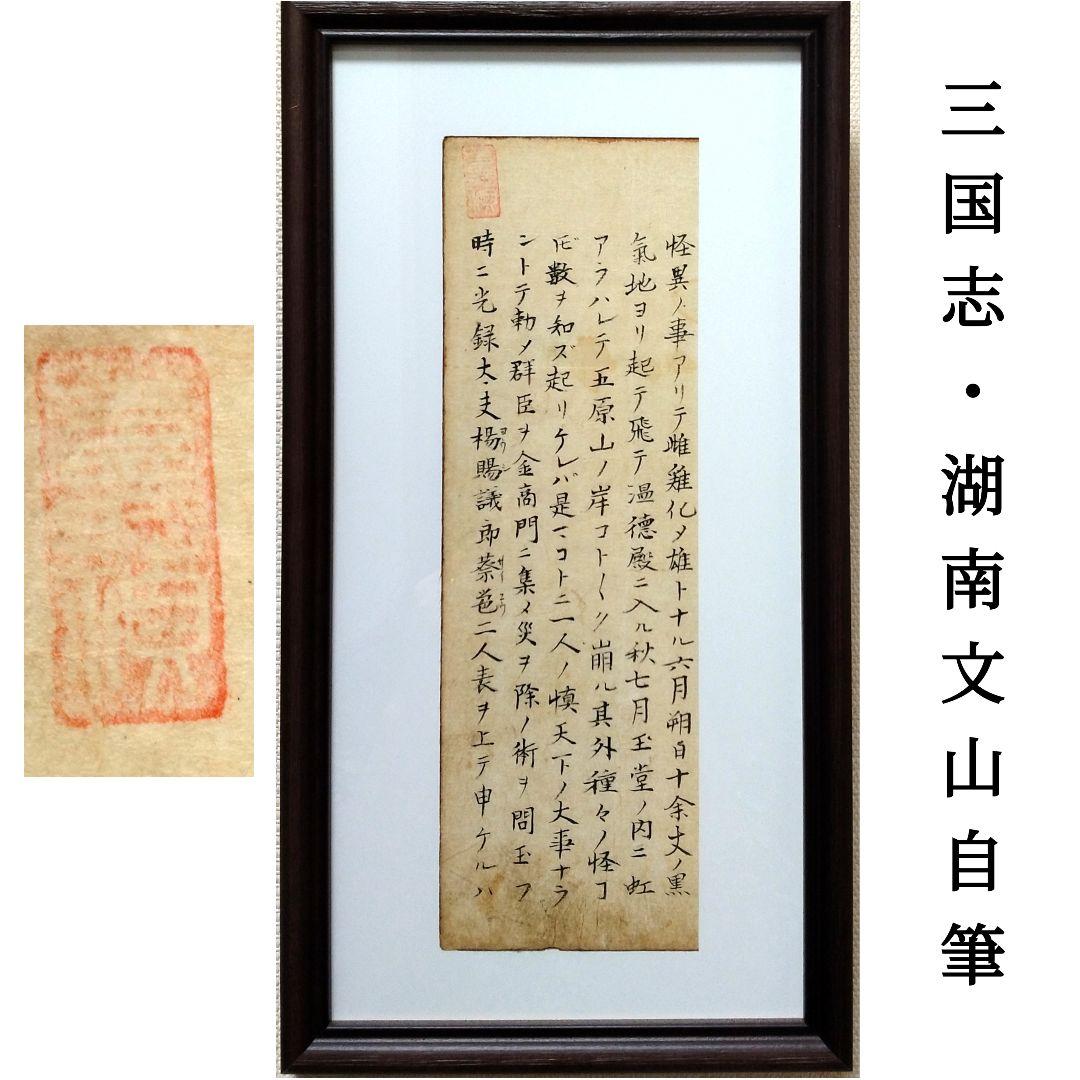 三国志・湖南文山自筆
怪異ノ事アリテ雌雞化メ雄トナル六月朔日十余丈ノ黒
氣地ヨリ起テ飛テ温德殿ニ入ル秋七月玉堂ノ内ニ虹
アラハレテ五原山ノ岸コト〱ク崩ル其外種々ノ怪コ
数ヲ知ズ起リケレバ是コト二人ノ慎天下ノ大事ナラ
ントテ勅メ群臣ヲ金商門ニ集メ災ヲ除ノ術ヲ問玉フ
時ニ光録大夫楊賜議郎蔡邕二人表ヲ上テ申ケルハ